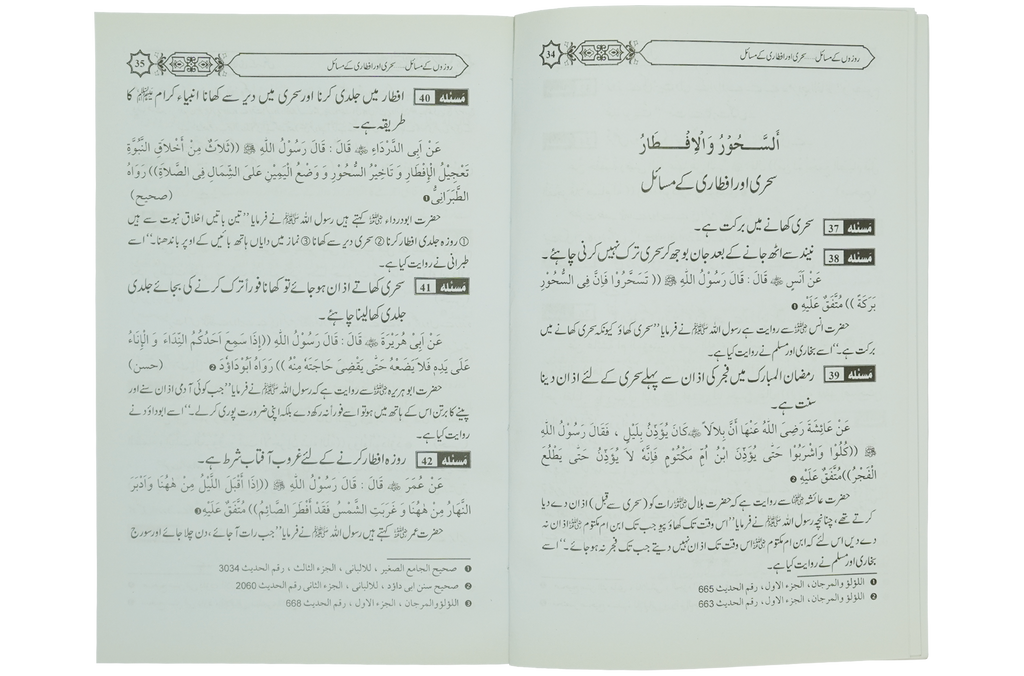 34
روزوں کے مسائل ..... سحری اور افطاری کے مسائل
اَلسَّحُوْرُ وَالْاِفْطَارُ
سحری اور افطاری کے مسائل
مَسئلہ 37 سحری کھانے میں برکت ہے۔
مَسئلہ 38 نیند سے اٹھ جانے کے بعد جان بوجھ کر سحری ترک نہیں کرنی چاہئے۔
عَنْ اَنَسٍ ﷜ قَالَ : قَالَ رَسُوْلُ اللهِ ﷺ (( تَسَحَّرُوْا فَاِنَّ فِی السُّحُوْرِ
بَرَكَةً )) مُتَّفَقٌ عَلَيْهِ ❶
حضرت انس ﷜ سے روایت ہے رسول اللہ ﷺ نے فرمایا ”سحری کھاؤ کیونکہ سحری کھانے میں
برکت ہے۔“ اسے بخاری اور مسلم نے روایت کیا ہے۔
مَسئلہ 39 رمضان المبارک میں فجر کی اذان سے پہلے سحری کے لئے اذان دینا
سنت ہے۔
عَنْ عَائِشَةَ رَضِیَ اللهُ عَنْهَا اَنَّ بِلاَلاً ﷜ كَانَ يُؤَذِّنُ بِلَيْلٍ ، فَقَالَ رَسُوْلُ اللهِ
ﷺ ((كُلُوْا وَاشْرَبُوْا حَتّٰی يُؤَذِّنَ ابْنُ اُمِّ مَكْتُوْمٍ فَاِنَّهٗ لاَ يُؤَذِّنُ حَتّٰی يَطْلُعَ
الْفَجْرُ))مُتَّفَقٌ عَلَيْهِ ❷
حضرت عائشہ ﷞ سے روایت ہے کہ حضرت بلال ﷜ رات کو (سحری سے قبل) اذان دے دیا
کرتے تھے، چنانچہ رسول اللہ ﷺ نے فرمایا ”اس وقت تک کھاؤ پیو جب تک ابن ام مکتوم ﷜ اذان نہ
دے دیں اس لئے کہ ابن ام مکتوم ﷜ اس وقت تک اذان نہیں دیتے جب تک فجر نہ ہو جائے۔“ اسے
بخاری اور مسلم نے روایت کیا ہے۔
❶ اللؤلؤ والمرجان، الجزء الاول، رقم الحديث 665
❷ اللؤلؤ والمرجان، الجزء الاول، رقم الحديث 663
35
روزوں کے مسائل ..... سحری اور افطاری کے مسائل
مَسئلہ 40 افطار میں جلدی کرنا اور سحری میں دیر سے کھانا انبیاء کرام کا
طریقہ ہے۔
عَنْ اَبِی الدَّرْدَاءِ ﷜ قَالَ : قَالَ رَسُوْلُ اللهِ ﷺ ((ثَلاَثٌ مِنْ اَخْلاَقِ النُّبُوَّةِ
تَعْجِيْلُ الْاِفْطَارِ وَ تَاخِيْرُ السُّحُوْرِ وَ وَضْعُ الْيَمِيْنِ عَلَی الشِّمَالِ فِی الصَّلاَةِ)) رَوَاهُ
الطَّبَرَانِیُّ ❶ (صحيح)
حضرت ابودرداء ﷜ کہتے ہیں رسول اللہ ﷺ نے فرمایا ”تین باتیں اخلاق نبوت سے ہیں
① روزہ جلدی افطار کرنا ② سحری دیر سے کھانا ③ نماز میں دایاں ہاتھ بائیں کے اوپر باندھنا۔“ اسے
طبرانی نے روایت کیا ہے۔
مَسئلہ 41 سحری کھاتے اذان ہو جائے تو کھانا فوراً ترک کرنے کی بجائے جلدی
جلدی کھا لینا چاہئے۔
عَنْ اَبِی هُرَيْرَةَ ﷜ قَالَ : قَالَ رَسُوْلُ اللهِ ﷺ ((اِذَا سَمِعَ اَحَدُكُمُ النِّدَاءَ وَ الْاِنَاءُ
عَلٰی يَدِهٖ فَلاَ يَضَعْهُ حَتّٰی يَقْضِیَ حَاجَتَهٗ مِنْهُ )) رَوَاهُ اَبُوْدَاوٗدَ ❷ (حسن)
حضرت ابوہریرہ ﷜ سے روایت ہے کہ رسول اللہ ﷺ نے فرمایا ”جب کوئی آدمی اذان سنے اور
پینے کا برتن اس کے ہاتھ میں ہو تو اسے فوراً نہ رکھ دے بلکہ اپنی ضرورت پوری کر لے۔“ اسے ابوداؤد نے
روایت کیا ہے۔
مَسئلہ 42 روزہ افطار کرنے کے لئے غروب آفتاب شرط ہے۔
عَنْ عُمَرَ ﷜ قَالَ : قَالَ رَسُوْلُ اللهِ ﷺ ((اِذَا اَقْبَلَ اللَّيْلُ مِنْ هٰهُنَا وَ اَدْبَرَ
النَّهَارُ مِنْ هٰهُنَا وَ غَرَبَتِ الشَّمْسُ فَقَدْ اَفْطَرَ الصَّائِمُ)) مُتَّفَقٌ عَلَيْهِ ❸
حضرت عمر ﷜ کہتے ہیں رسول اللہ ﷺ نے فرمایا ”جب رات آ جائے، دن چلا جائے اور سورج
❶ صحيح الجامع الصغير ، للالبانی ، الجزء الثالث ، رقم الحديث 3034
❷ صحيح سنن ابی داؤد ، للالبانی ، الجزء الثانی رقم الحديث 2060
❸ اللؤلؤ والمرجان ، الجزء الاول ، رقم الحديث 668